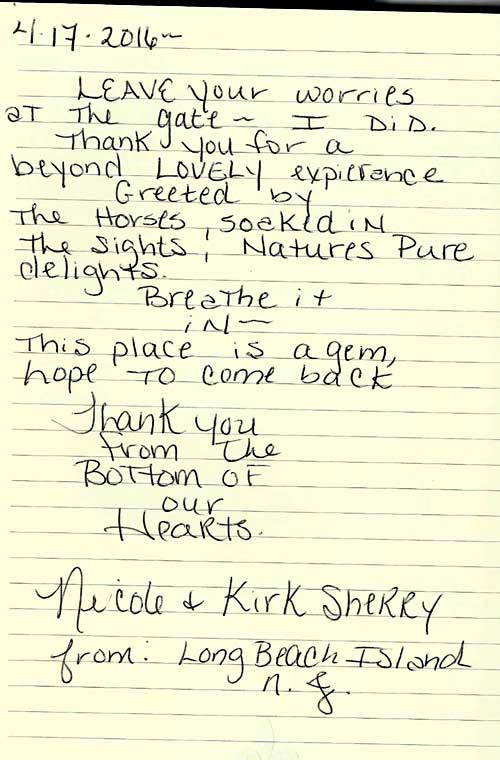 4.17.2016~
LEAVE your worries
at The gate ~ I DiD.
Thank you for a
beyond LOVELY expierence
Greeted by
The Horses, soaked iN
The Sights; Natures Pure
delights.
Breathe it
iN—
This place is a gem,
hope To come back
Thank you
from The
Bottom of
our
Hearts.
Nicole & Kirk Sherry
from: Long Beach Island
n. J.